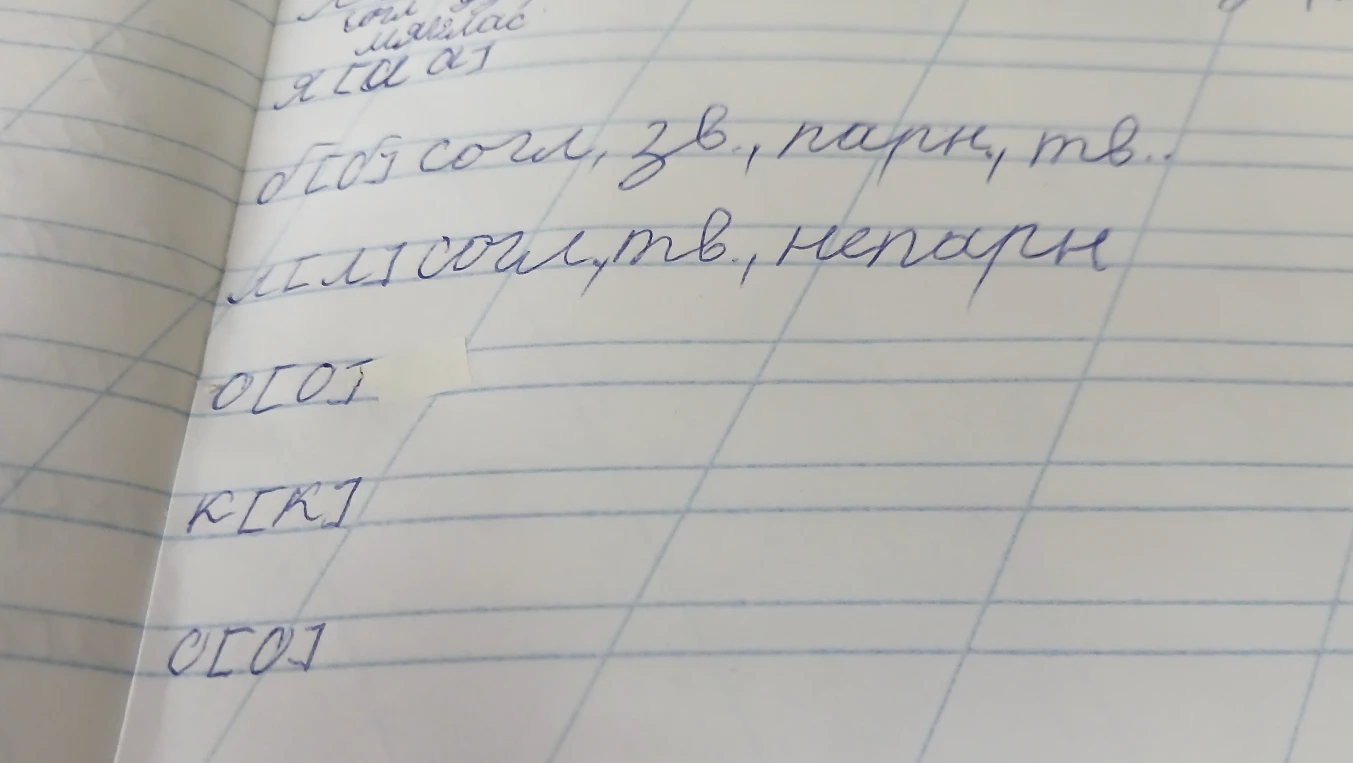 согл
мягглас
я [а а]
б [б] согл, зв., парн., тв..
л [л] согл, тв., непарн
о [о]
к [к]
о [о]